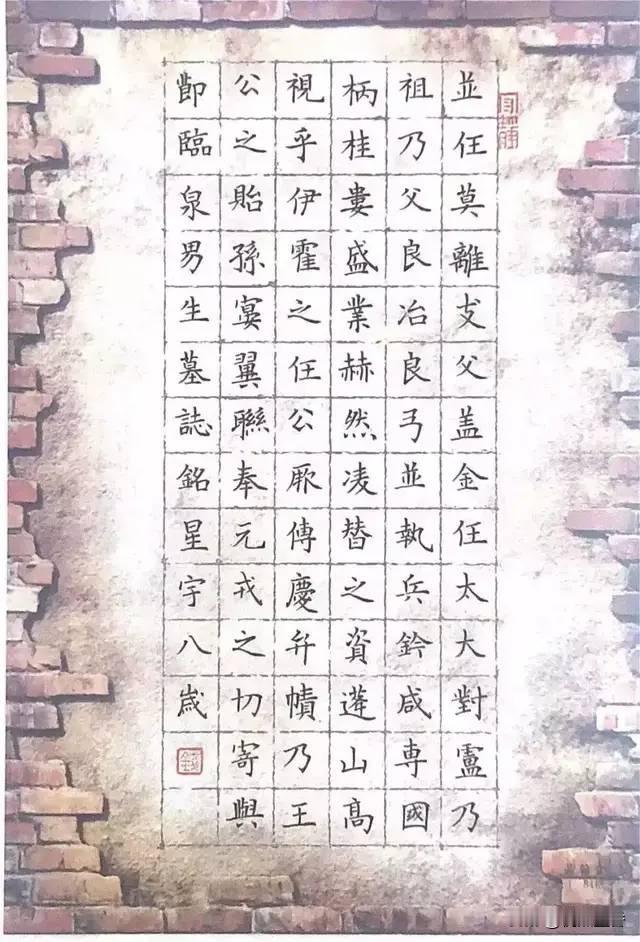 並任莫離支父盖金任太大對盧乃
祖乃父良冶良弓並執兵鈐咸専國
柄桂婁盛業赫然凌替之資蓬山高
視乎伊霍之任公厥傳慶弁幘乃王
公之貽孫寔翼聯奉元戎之切寄與
節臨泉男生墓誌銘星宇八歲